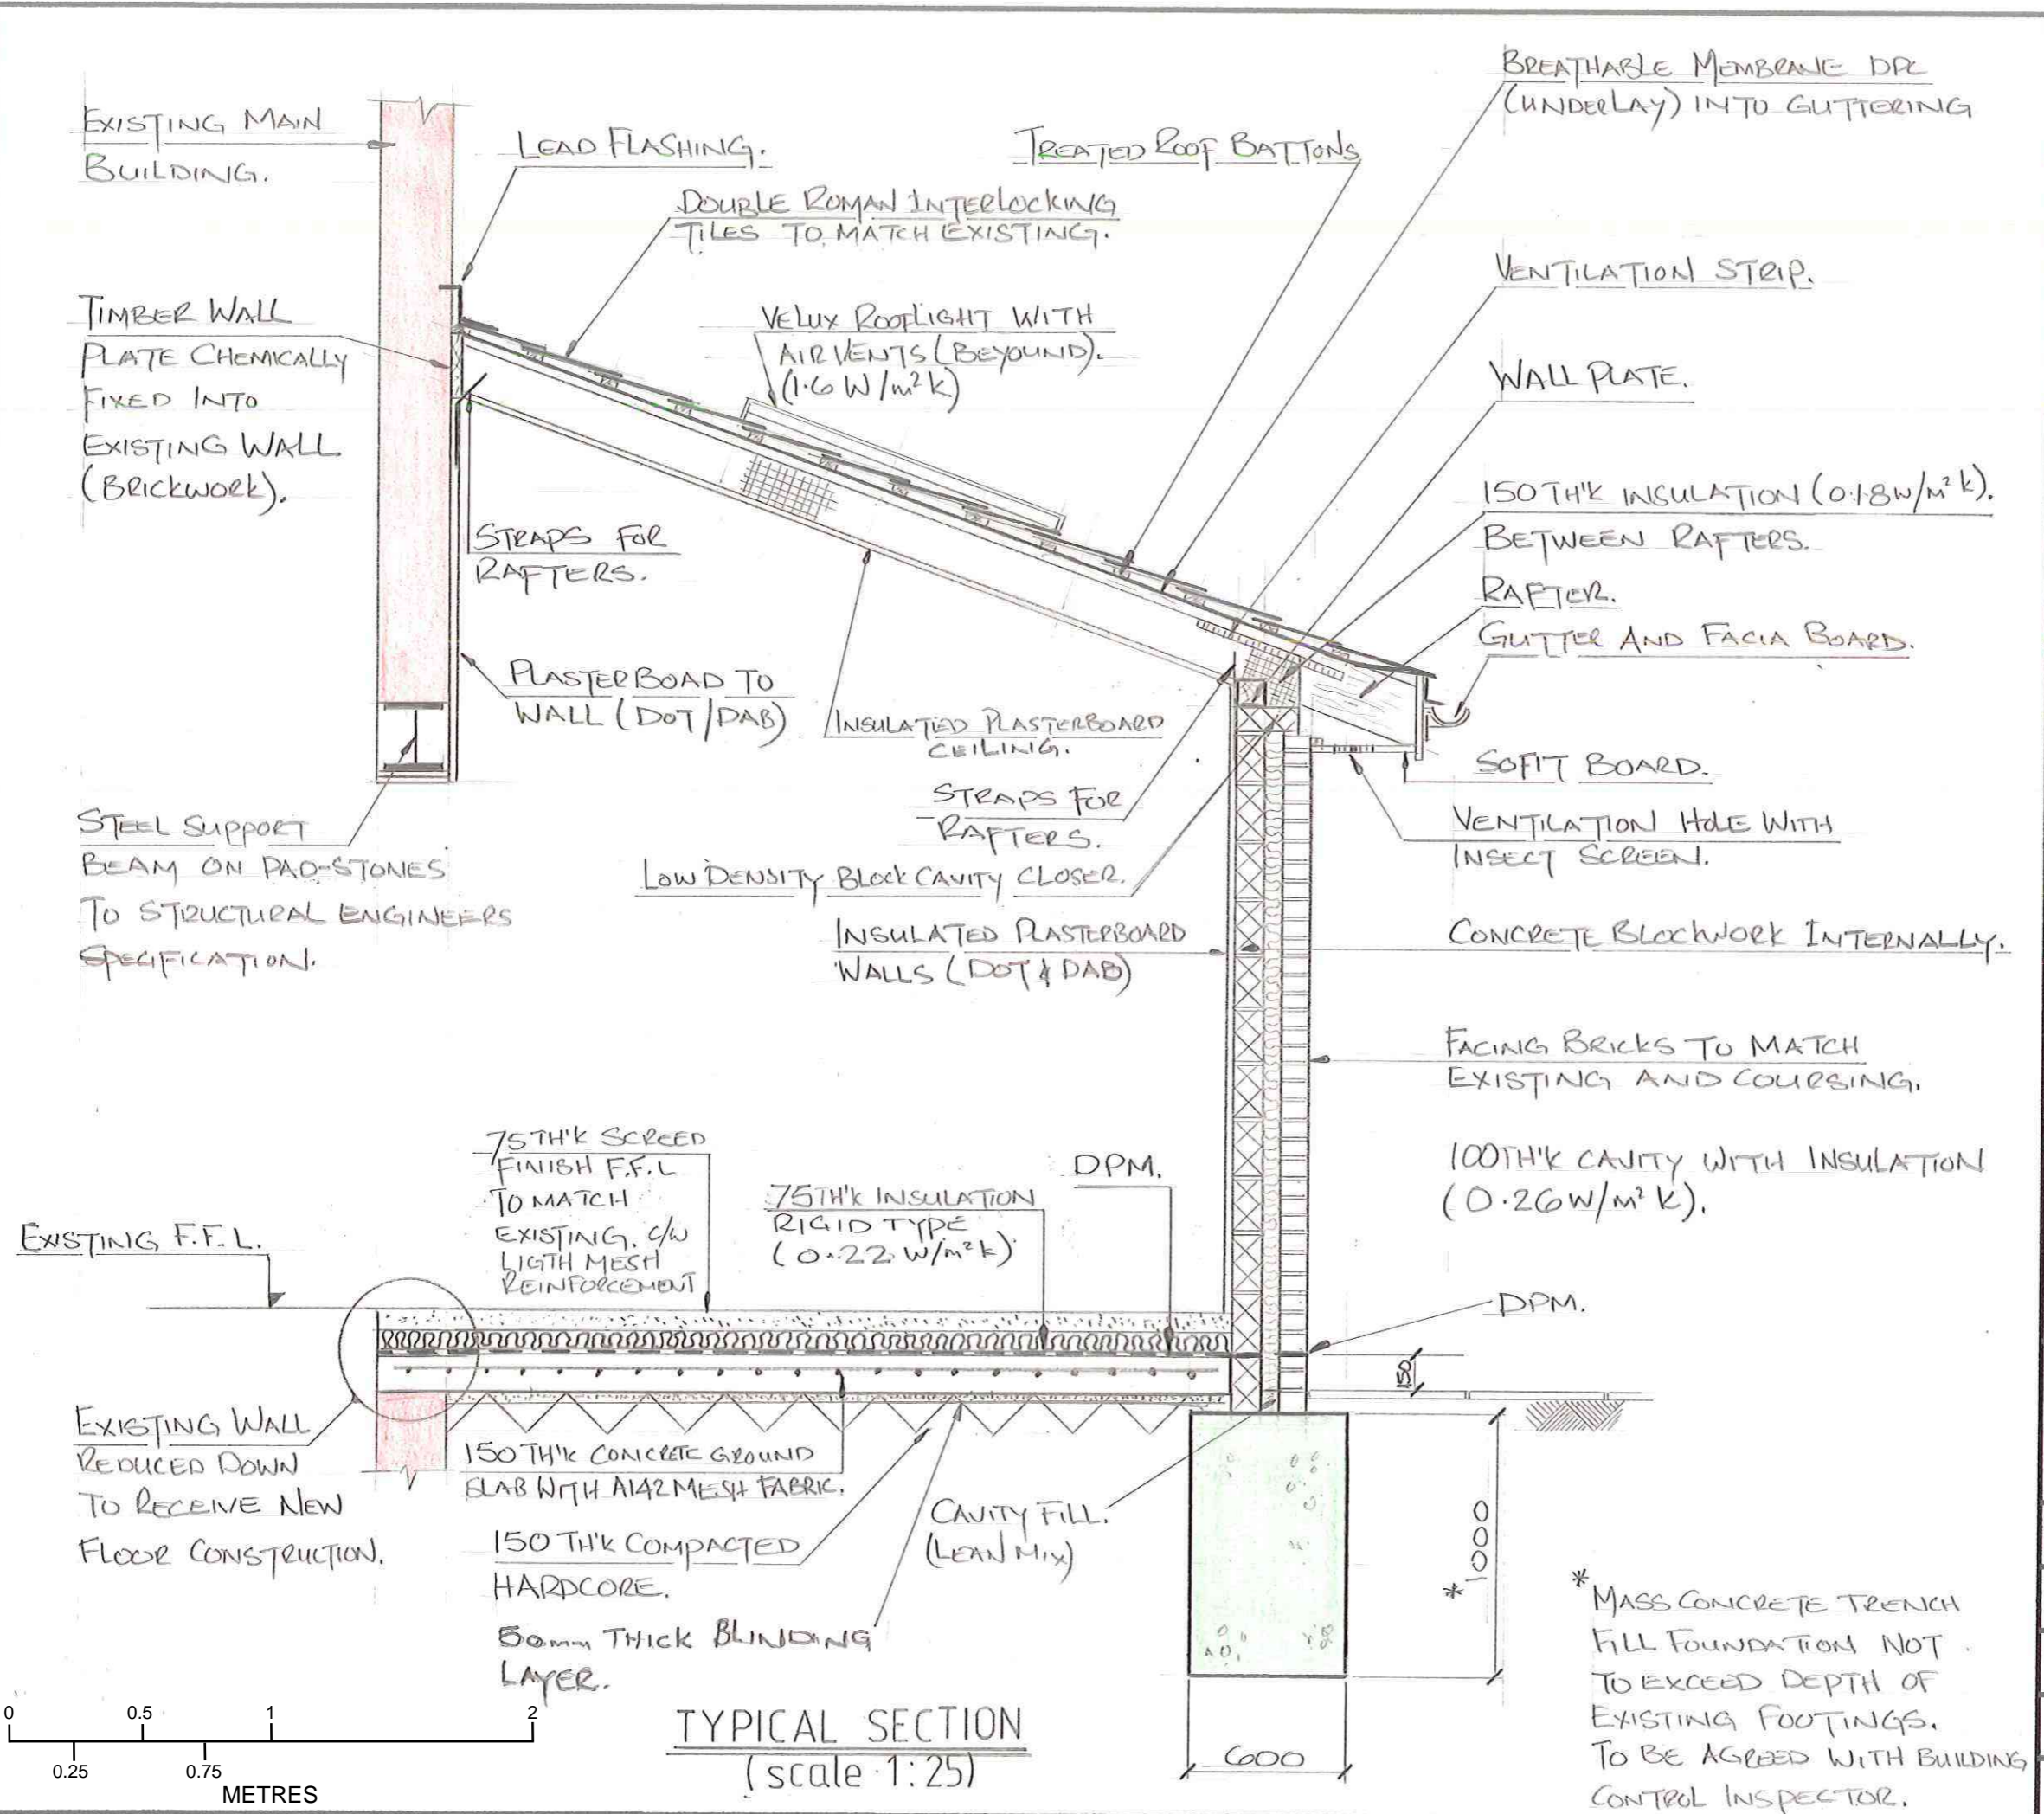 EXISTING MAIN
BUILDING.
LEAD FLASHING.
DOUBLE ROMAN INTERLOCKING
TILES TO MATCH EXISTING.
TREATED ROOF BATTONS
BREATHABLE MEMBRANE DPC
(UNDERLAY) INTO GUTTERING
VENTILATION STRIP.
WALL PLATE.
TIMBER WALL
PLATE CHEMICALLY
FIXED INTO
EXISTING WALL
(BRICKWORK).
VELUX ROOFLIGHT WITH
AIR VENTS (BEYOUND).
(1.6 W/m²K)
150 TH'K INSULATION (0.18W/m²K).
BETWEEN RAFTERS.
RAFTER.
GUTTER AND FACIA BOARD.
STRAPS FOR
RAFTERS.
PLASTERBOAD TO
WALL (DOT/DAB)
INSULATED PLASTERBOARD
CEILING.
SOFIT BOARD.
STRAPS FOR
RAFTERS.
VENTILATION HOLE WITH
INSECT SCREEN.
STEEL SUPPORT
BEAM ON PAD-STONES
TO STRUCTURAL ENGINEERS
SPECIFICATION.
LOW DENSITY BLOCK CAVITY CLOSER.
INSULATED PLASTERBOARD
WALLS (DOT & DAB)
CONCRETE BLOCKWORK INTERNALLY.
FACING BRICKS TO MATCH
EXISTING AND COURSING.
100TH'K CAVITY WITH INSULATION
(0.26W/m²K).
75TH'K SCREED
FINISH F.F.L
TO MATCH
EXISTING. C/W
LIGTH MESH
REINFORCEMENT
75TH'K INSULATION
RIGID TYPE
(0.22 W/m²K)
DPM.
EXISTING F.F.L.
DPM.
150
EXISTING WALL
REDUCED DOWN
TO RECEIVE NEW
FLOOR CONSTRUCTION.
150 TH'K CONCRETE GROUND
SLAB WITH A142 MESH FABRIC.
150 TH'K COMPACTED
HARDCORE.
50mm THICK BLINDING
LAYER.
CAVITY FILL.
(LEAN MIX)
* 1000
600
* MASS CONCRETE TRENCH
FILL FOUNDATION NOT
TO EXCEED DEPTH OF
EXISTING FOOTINGS.
TO BE AGREED WITH BUILDING
CONTROL INSPECTOR.
TYPICAL SECTION
(scale 1:25)
0 0.5 1 2
0.25 0.75
METRES